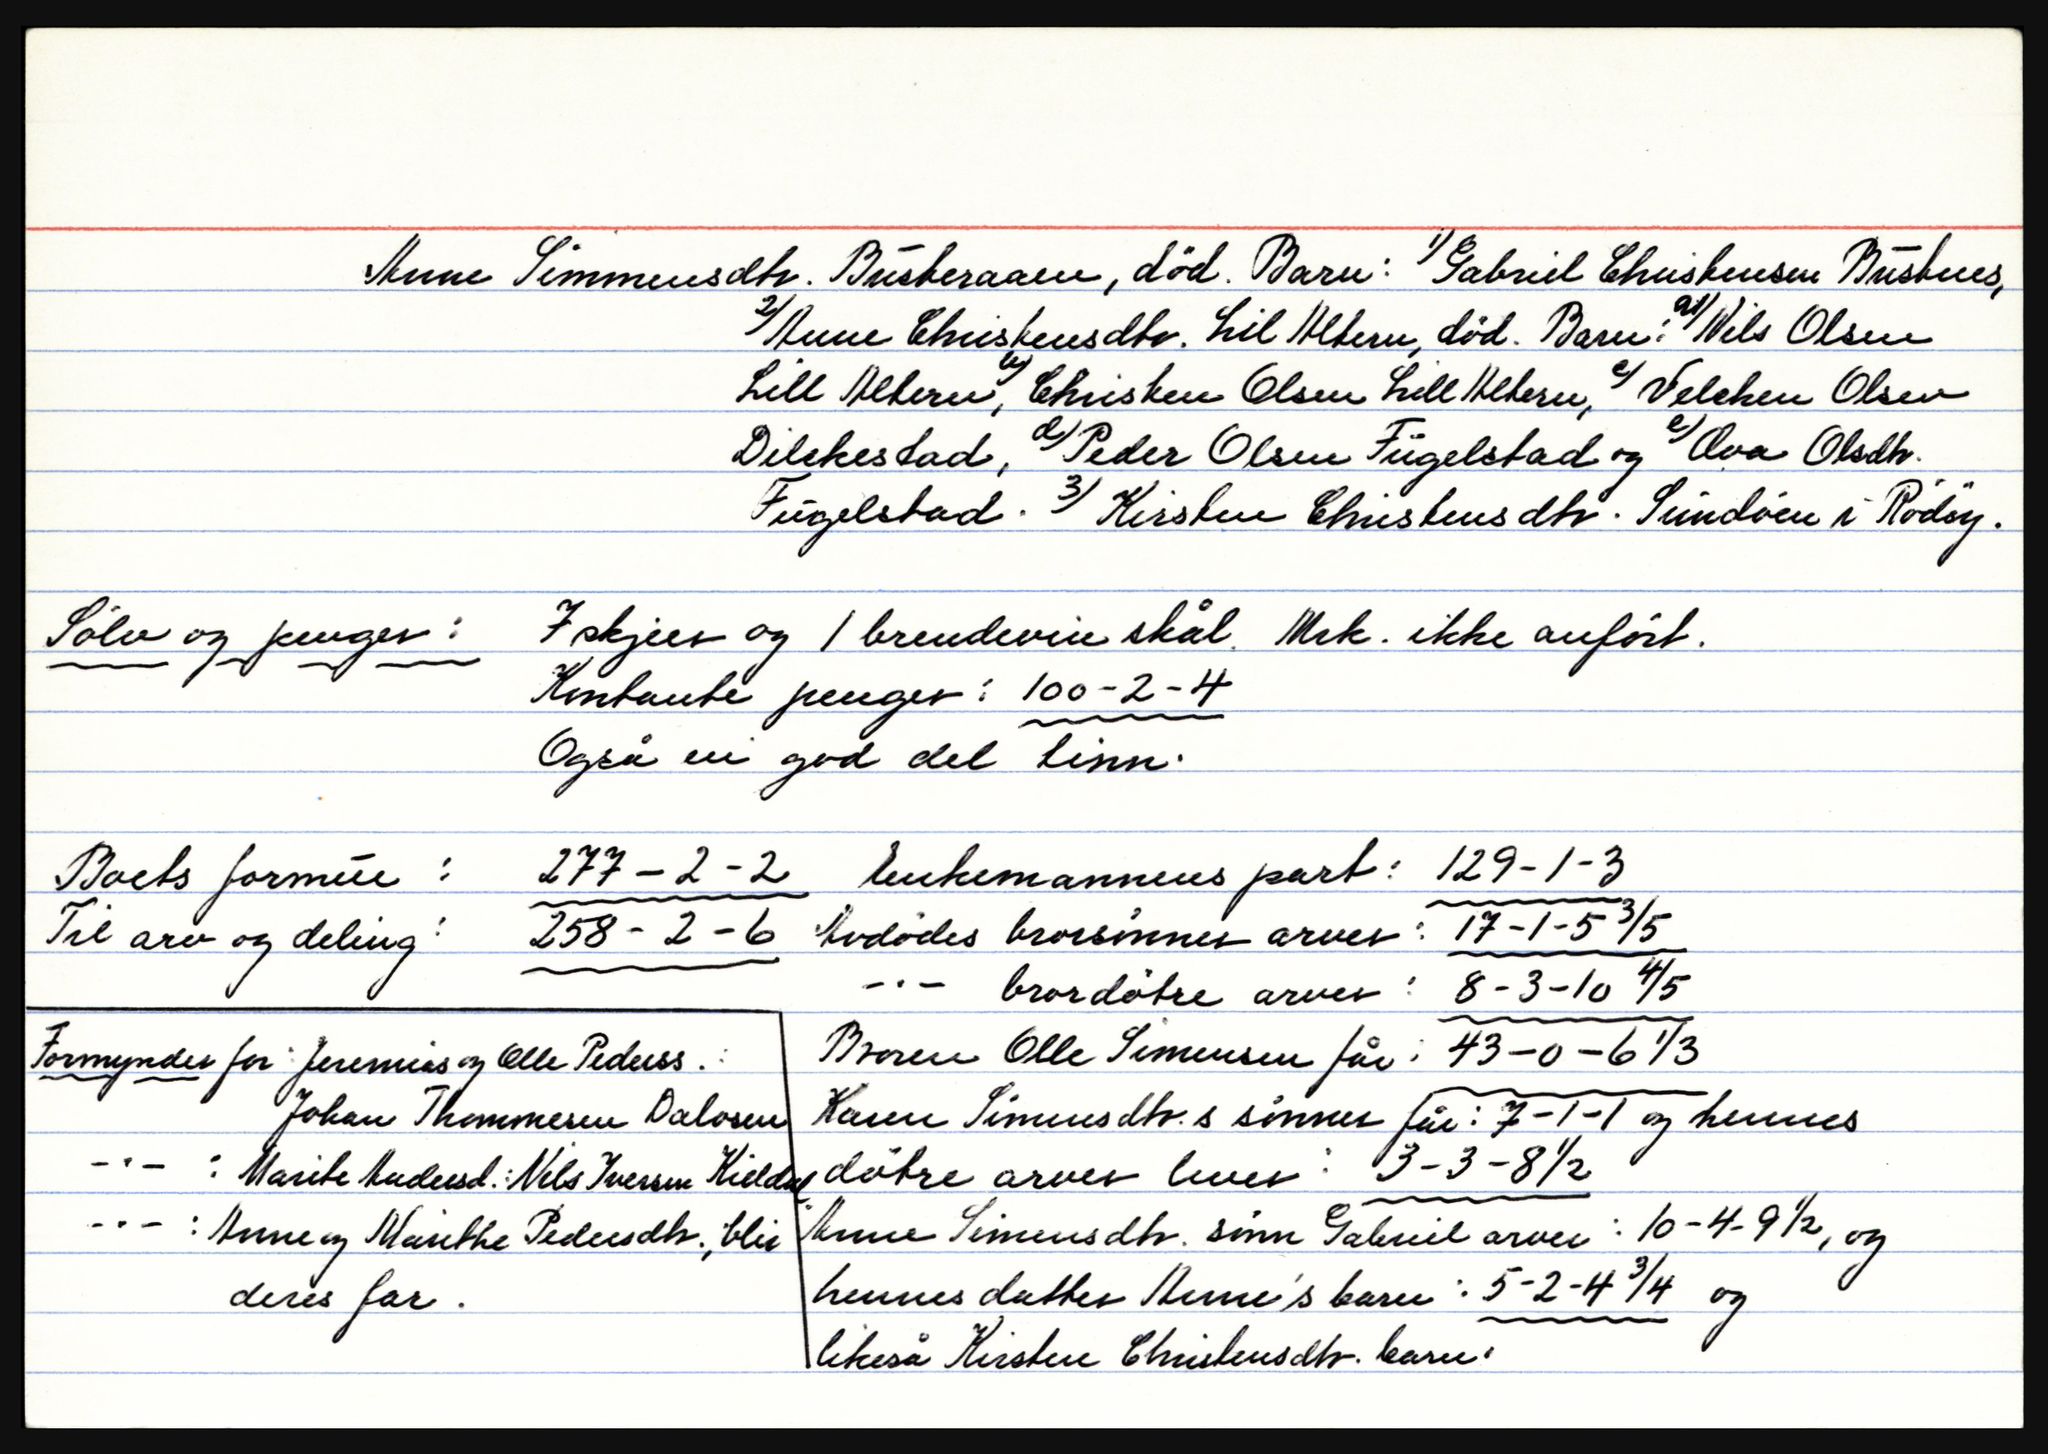 Anne Simmensdtr. Büsteraaen, död. Barn: 1) Gabriel Christensen Büstnes,
2) Anne Christensdtr. Lil Altern, död. Barn: a) Nils Olsen
Lill Altern, b) Christen Olsen Lill Altern, c) Velchen Olsen
Dilckestad, d) Peder Olsen Fügelstad og e) Ova Olsdtr.
Fügelstad. 3) Kirsten Christensdtr. Sündöen i Rödöy.
Sölv og penger: 7 skjeer og 1 brendevin skål. Mrk. ikke anfört.
Kontante penger: 100-2-4
Også en god del tinn.
Boets formüe: 277-2-2 Enkemannens part: 129-1-3
Til arv og deling: 258-2-6 Avdödes brorsönner arver: 17-1-5 3/5
-"- brordötre arver: 8-3-10 4/5
Broren Olle Simensen får: 43-0-6 1/3
Karen Simensdtr.s sönner får: 7-1-1 og hennes
dötre arver hver: 3-3-8 1/2
Anne Simensdtr. sönn Gabriel arver: 10-4-9 1/2, og
hennes datter Anne's barn: 5-2-4 3/4 og
likeså Kirsten Christensdtr. barn.
Formynder for: Jeremias og Olle Pederss.:
Johan Thommesen Dalosen
-"-: Marite Andersd.: Nils Iversen Kieldal
-"-: Anne og Marithe Pedersdtr., blir
deres far.